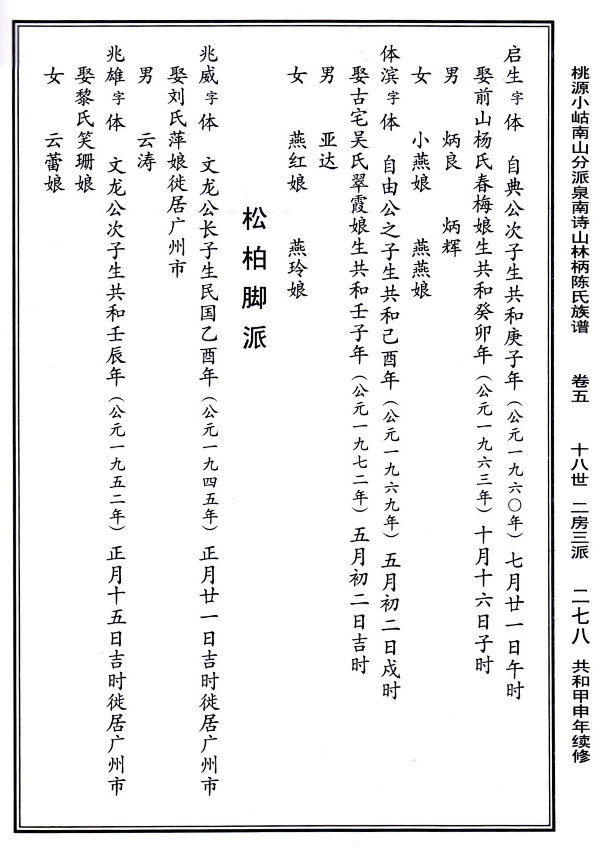 桃源小岵南山分派泉南诗山林柄陈氏族谱 卷五 十八世 二房三派 二七八 共和甲申年续修
启生字体 自典公次子生共和庚子年（公元一九六〇年）七月廿一日午时
娶前山杨氏春梅娘生共和癸卯年（公元一九六三年）十月十六日子时
男 炳良 炳辉
女 小燕娘 燕燕娘
体滨字体 自由公之子生共和己酉年（公元一九六九年）五月初二日戍时
娶古宅吴氏翠霞娘生共和壬子年（公元一九七二年）五月初二日吉时
男 亚达
女 燕红娘 燕玲娘
松柏脚派
兆威字体 文龙公长子生民国乙酉年（公元一九四五年）正月廿一日吉时徙居广州市
娶刘氏萍娘徙居广州市
男 云涛
兆雄字体 文龙公次子生共和壬辰年（公元一九五二年）正月十五日吉时徙居广州市
娶黎氏笑珊娘
女 云蕾娘